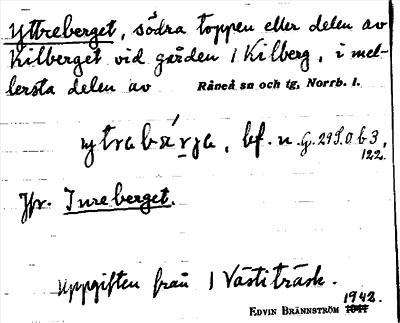 Yttreberget, södra toppen eller delen av
Kilberget vid gården 1 Kilberg, i mel-
lersta delen av Råneå sn och tg, Norrb. l.
ytrabárja, bf. n. G. 295.0 b 3,
122.
Jfr. Inreberget.
Uppgiften från 1 Västiträsk.
1942.
EDVIN BRÄNNSTRÖM 1941